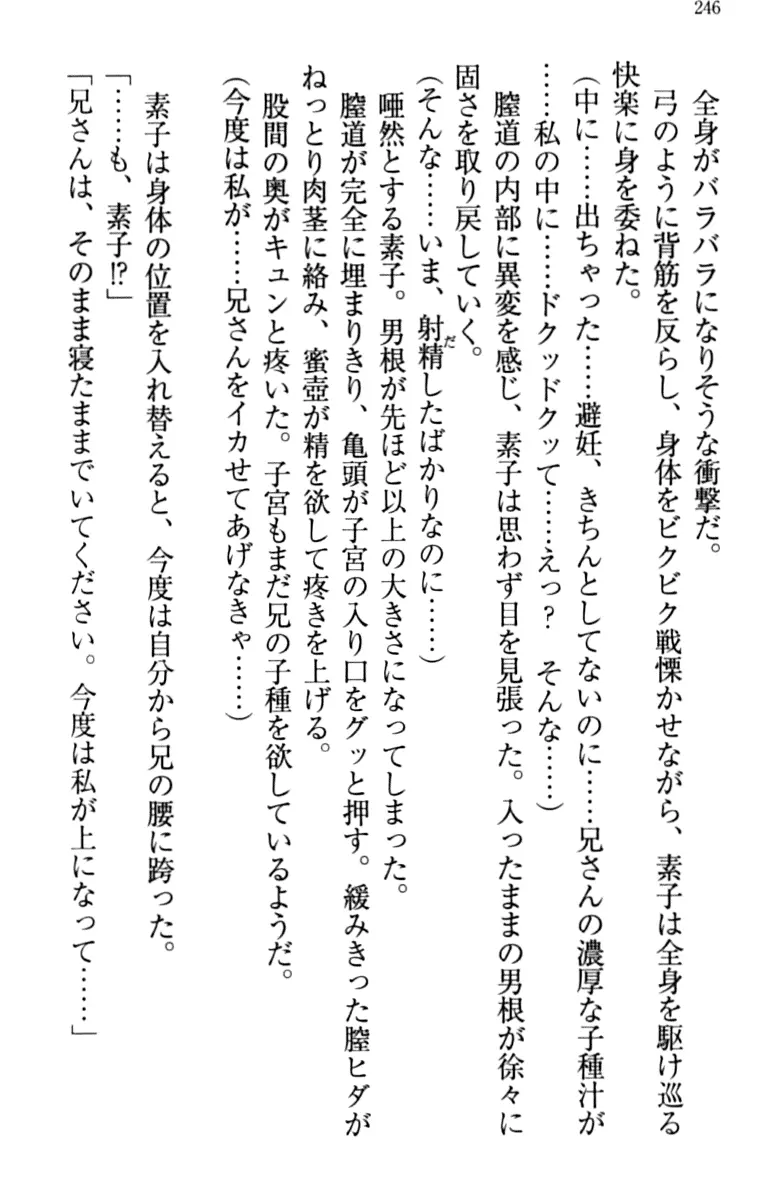 246
全身がバラバラになりそうな衝撃だ。
弓のように背筋を反らし、身体をビクビク戦慄かせながら、素子は全身を駆け巡る
快楽に身を委ねた。
（中に……出ちゃった……避妊、きちんとしてないのに……兄さんの濃厚な子種汁が
……私の中に……ドクッドクッて……えっ？　そんな……）
膣道の内部に異変を感じ、素子は思わず目を見張った。入ったままの男根が徐々に
固さを取り戻していく。
（そんな……いま、射精したばかりなのに……）
だ
唖然とする素子。男根が先ほど以上の大きさになってしまった。
膣道が完全に埋まりきり、亀頭が子宮の入り口をグッと押す。緩みきった膣ヒダが
ねっとり肉茎に絡み、蜜壺が精を欲して疼きを上げる。
股間の奥がキュンと疼いた。子宮もまだ兄の子種を欲しているようだ。
（今度は私が……兄さんをイカせてあげなきゃ……）
素子は身体の位置を入れ替えると、今度は自分から兄の腰に跨った。
「……も、素子!?」
「兄さんは、そのまま寝たままでいてください。今度は私が上になって……」